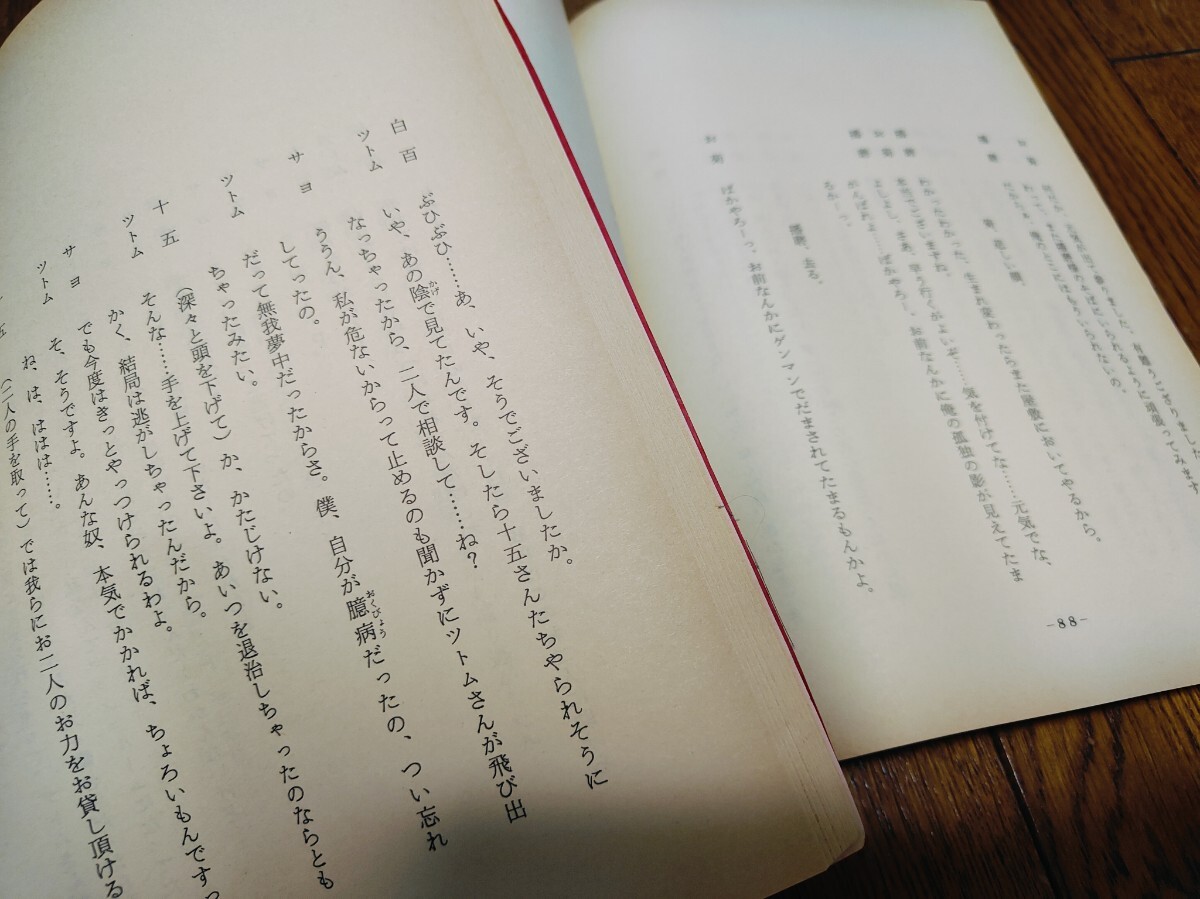 悲しい顔。
わかったわかった、生まれ変わったらまた屋敷においてやるから。
本当でございますね。
よしよし、さあ、早う行くがよいぞ……気を付けてな……元気でな、
がんばれよ……ばかやろー。お前なんかに俺の孤独の影が見えてたま
るかーっ。
播磨、去る。
お菊　ばかやろーっ、お前なんかにゲンマンでだまされてたまるもんかよ。
-88-
白百　ぶひぶひ……あ、いや、そうでございましたか。
ツトム　いや、あの陰で見てたんです。そしたら十五さんたちやられそうに
かげ
なっちゃったから、二人で相談して……ね?
サヨ　ううん、私が危ないからって止めるのも聞かずにツトムさんが飛び出
してったの。
ツトム　だって無我夢中だったからさ。僕、自分が臆病だったの、つい忘れ
おくびょう
ちゃったみたい。
十五　（深々と頭を下げて）か、かたじけない。
ツトム　そんな……手を上げて下さいよ。あいつを退治しちゃったのならとも
かく、結局は逃がしちゃったんだから。
サヨ　でも今度はきっとやっつけられるわよ。
ツトム　そ、そうですよ。あんな奴、本気でかかれば、ちょろいもんですっ
ね、は、ははは……。
五　（二人の手を取って）では我らにお二人のお力をお貸し頂ける